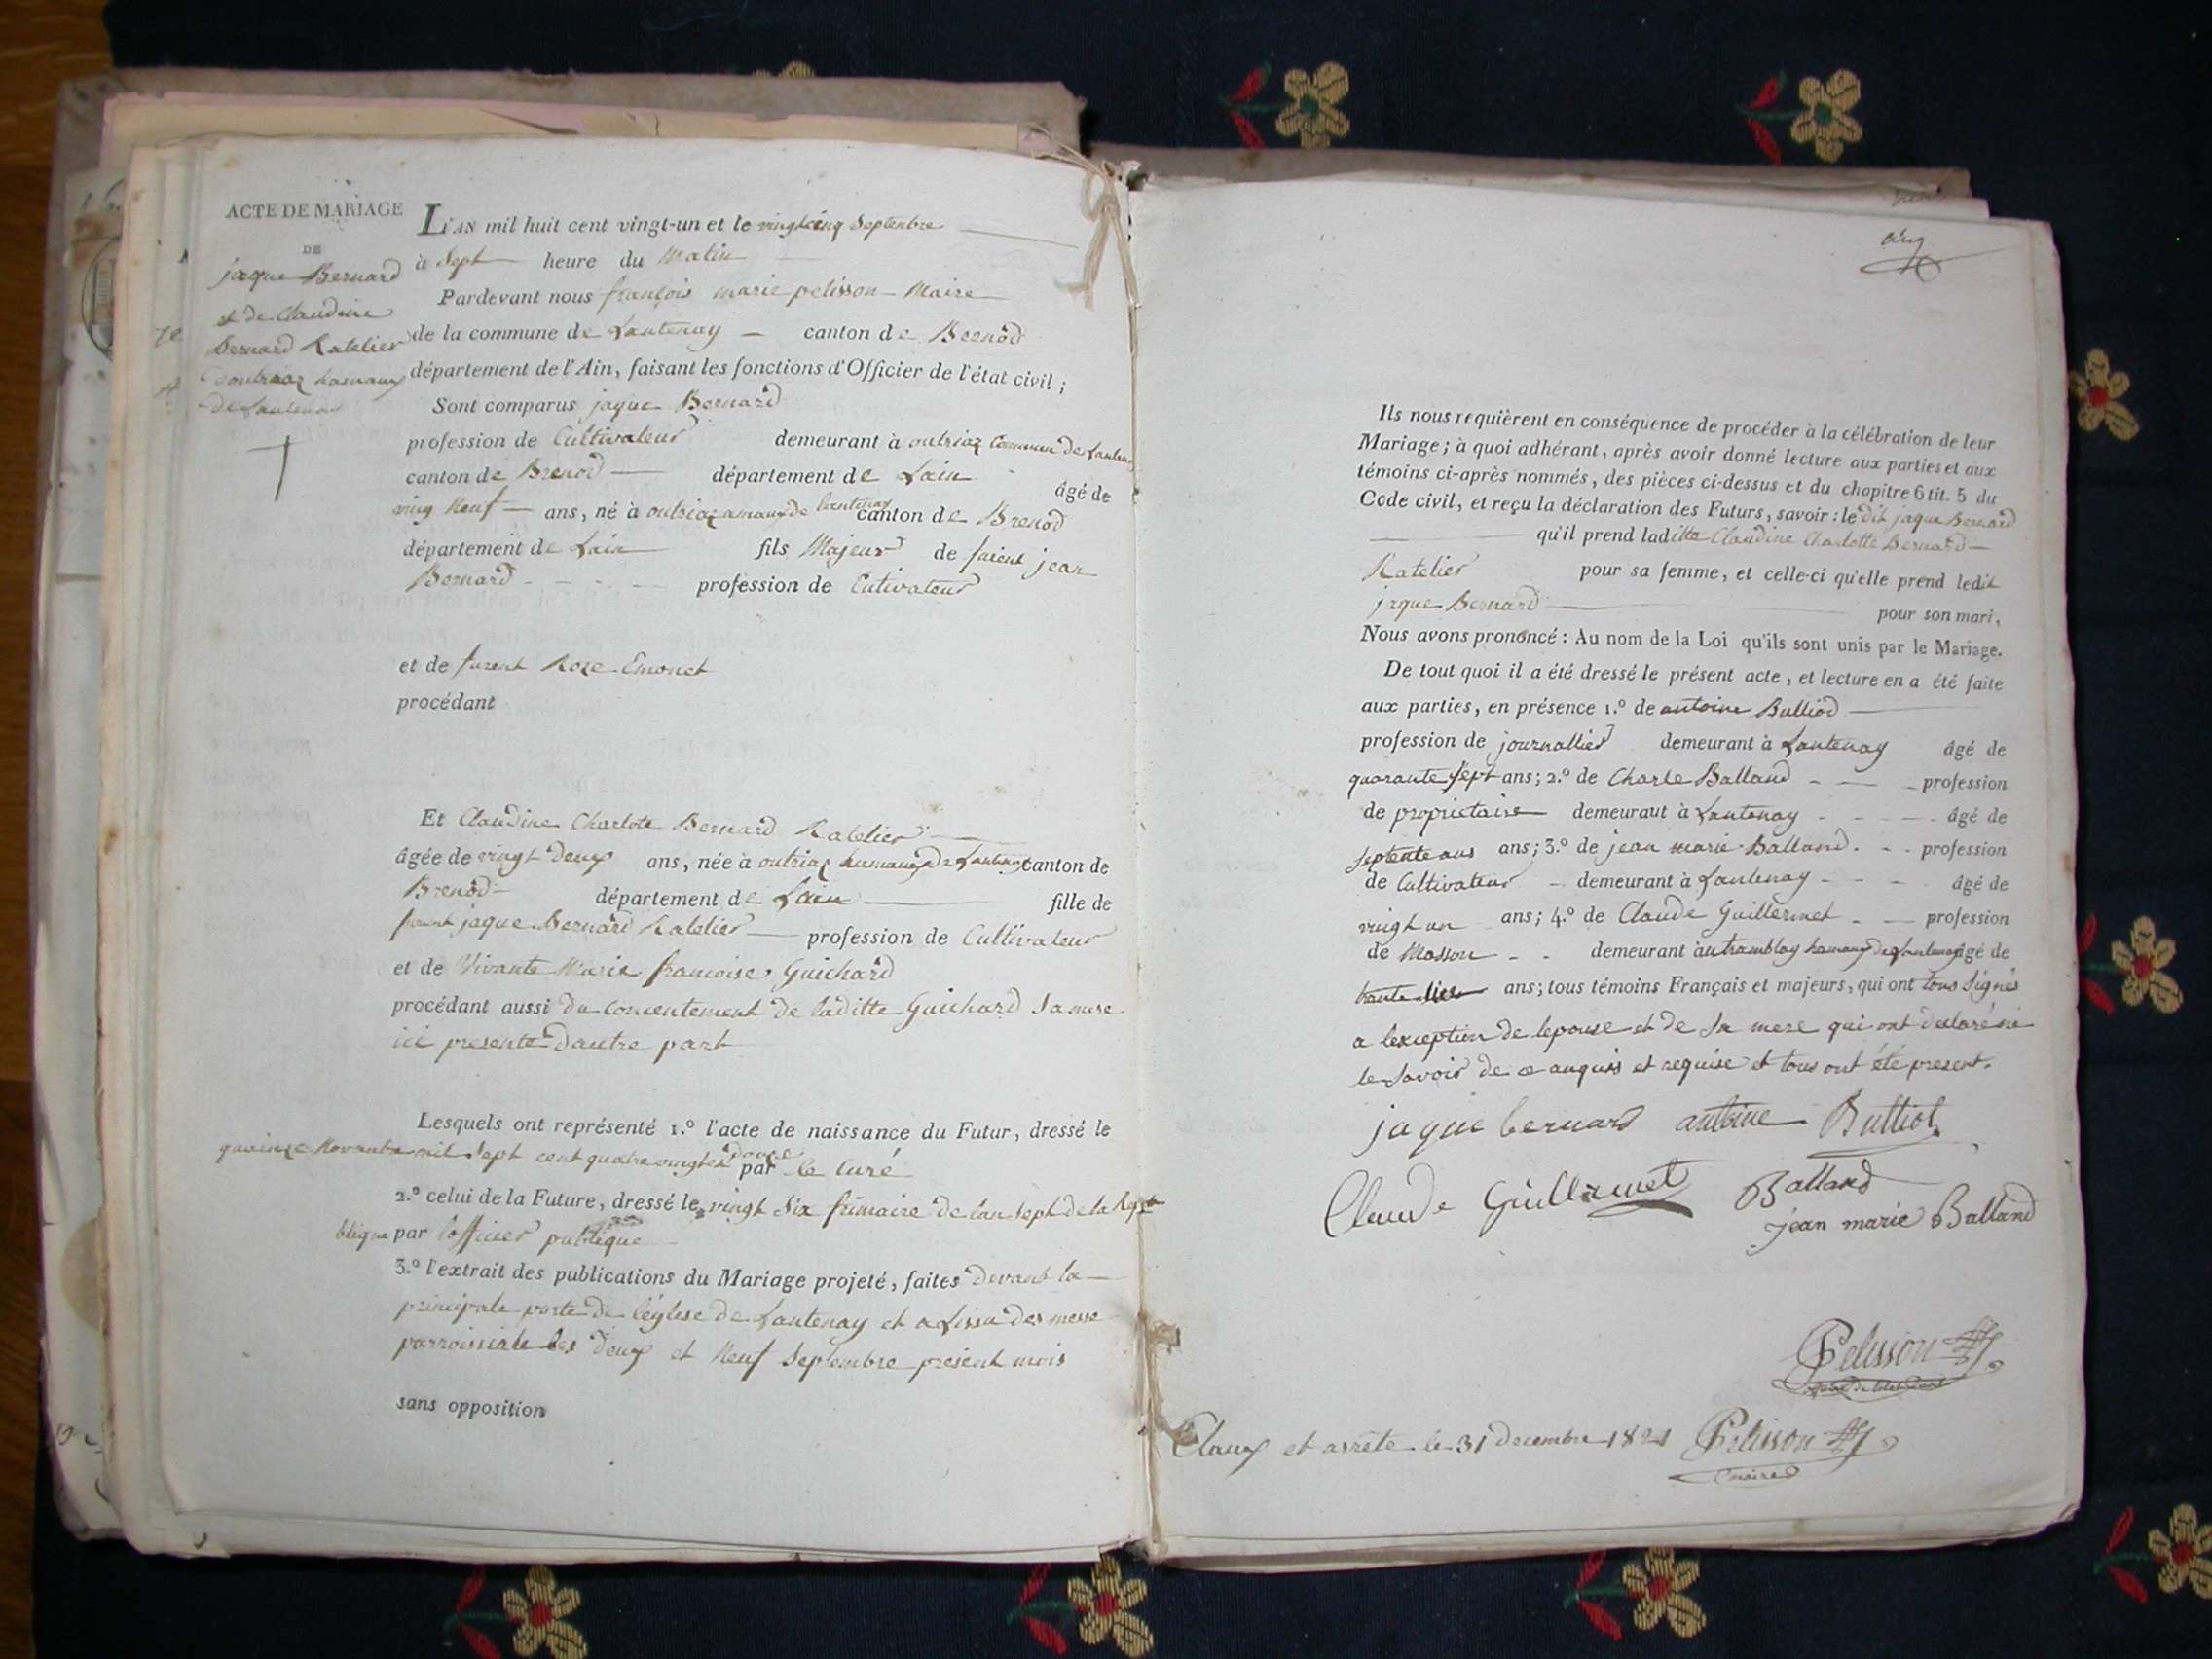 ACTE DE MARIAGE
DE
jaque Bernard
et de Claudine
Bernard Ratelier
doutriaz hamaux
de Lantenay
L'AN mil huit cent vingt-un et le vingtcinq Septembre
à Sept heure du Matin
Pardevant nous françois marie pelisson Maire
de la commune de Lantenay canton de Brenod
département de l'Ain, faisant les fonctions d'Officier de l'état civil ;
Sont comparus jaque Bernard
profession de Cultivateur demeurant à outriaz Commune de Lantenay
canton de Brenod département de Lain âgé de
ving Neuf ans, né à outriaz amaux de Lantenay canton de Brenod
département de Lain fils Majeur de furent jean
Bernard profession de Cutivateur
et de furent Roze Emonet
procédant
Et Claudine Charlote Bernard Ratelier
âgée de vingt Deux ans, née à outriaz hamaux de Lantenay canton de
Brenod département de Lain fille de
furent jaque Bernard Ratelier profession de Cultivateur
et de Vivante Marie francoise Guichard
procédant aussi du concentement de laditte Guichard Sa mere
ici presente Dautre part
Lesquels ont représenté 1.º l'acte de naissance du Futur, dressé le
quinze Novembre mil Sept cent quatre vingtet douze par le Curé
2.º celui de la Future, dressé le vingt Six frimaire de lan Sept de la Repu
blique par lofficier publique
3.º l'extrait des publications du Mariage projeté, faites devant la
principale porte de léglise de Lantenay et a Lissu des messe
parroissiale les deux et Neuf Septembre présent mois
sans opposition
Ils nous requièrent en conséquence de procéder à la célébration de leur
Mariage ; à quoi adhérant, après avoir donné lecture aux parties et aux
témoins ci-après nommés, des pièces ci-dessus et du chapitre 6 tit. 5 du
Code civil, et reçu la déclaration des Futurs, savoir : le dit jaque Bernard
qu'il prend laditte Claudine Charlotte Bernard
Ratelier pour sa femme, et celle-ci qu'elle prend ledit
jaque Bernard pour son mari,
Nous avons prononcé : Au nom de la Loi qu'ils sont unis par le Mariage.
De tout quoi il a été dressé le présent acte, et lecture en a été faite
aux parties, en présence 1.º de antoine Bulliod
profession de journallier demeurant à Lantenay âgé de
quarante Sept ans ; 2.º de Charle Balland profession
de proprietaire demeurant à Lantenay âgé de
Septente ans ans ; 3.º de jean marie Balland profession
de Cultivateur demeurant à Lantenay âgé de
vingt un ans ; 4.º de Claude Guillermet profession
de Masson demeurant au tramblay hamaux de Lantenay âgé de
trante ans ; tous témoins Français et majeurs, qui ont tous Signés
a lexception de lepouse et de Sa mere qui ont declaré ne
le Savoir de ce anquis et requise et tous ont été present.
jaque bernard antoine Bulliot
Claude Guillermet Balland
jean marie Balland
Pelisson
Claux et arrête le 31 decembre 1821 Pelisson
maire